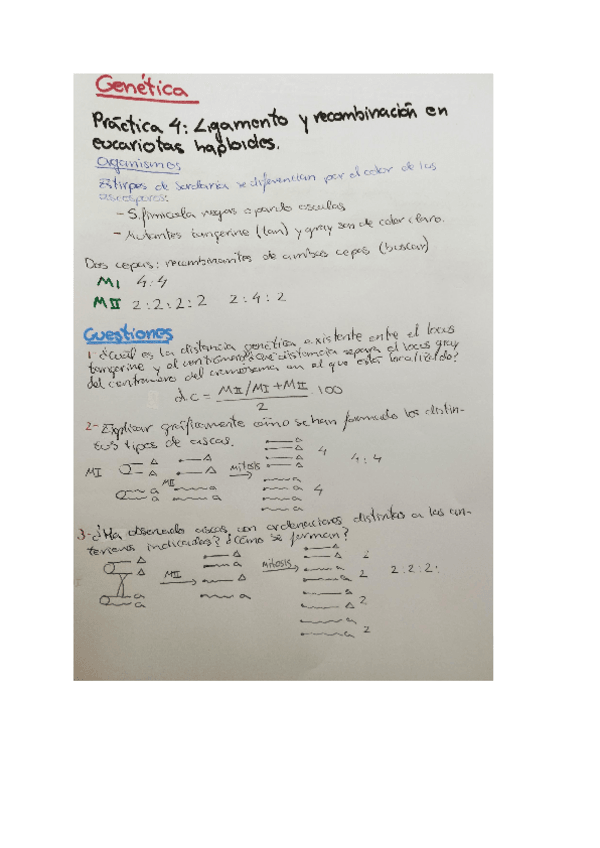 Genética
Práctica 4: Ligamento y recombinación en
eucariotas haploides.
Organismos
Estirpes de Sordaria se diferencian por el color de las
ascosporas:
- S. fimicola negras o pardo oscuras
- Mutantes tangerine (tan) y gray son de color claro.
Dos cepas: recombinantes de ambas cepas (buscar)
MI 4:4
MII 2:2:2:2 2:4:2
Cuestiones
1. ¿Cuál es la distancia genética existente entre el locus
tangerine y el centrómero? ¿Qué distancia separa el locus gray
del centrómero del cromosoma en el que está localizado?
dc = MII/MI+MII / 2 . 100
2- Explicar gráficamente cómo se han formado los distin-
tos tipos de ascas.
MI A A A A MII a a a a mitosis A A A A 4 a a a a 4 4:4
3- ¿Ha observado ascas con ordenaciones distintas a las an-
teriores indicadas? ¿Cómo se forman?
A A a a MII A a A a mitosis 2 2 2 2 2:2:2: